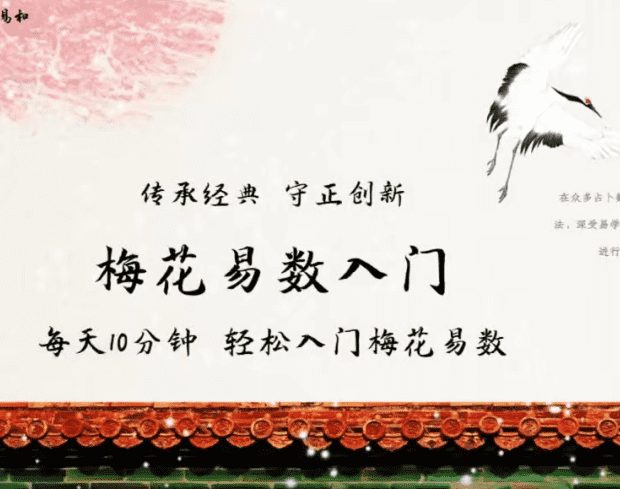 易和
传承经典 守正创新
梅花易数入门
每天10分钟 轻松入门梅花易数
在众多占卜
法，深受易学
进行